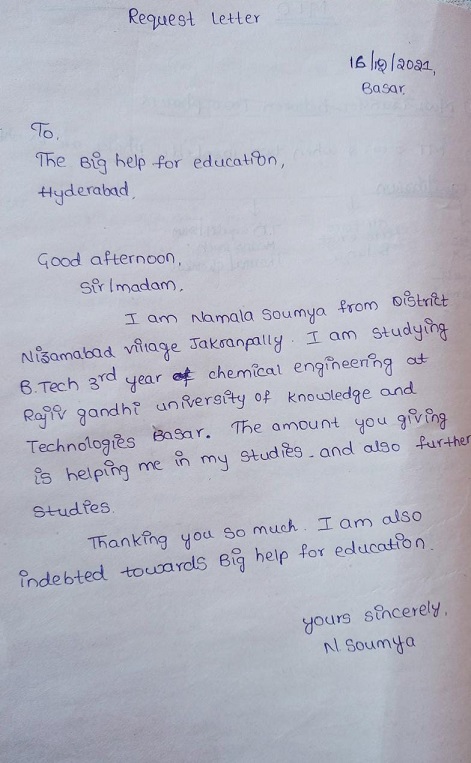 Request Letter
16/12/2021,
Basar.
To,
The Big help for education,
Hyderabad.
Good afternoon,
Sir/madam,
I am Namala Soumya from District
Nizamabad village Jakranpally. I am studying
B.Tech 3rd year of chemical engineering at
Rajiv gandhi university of knowledge and
Technologies Basar. The amount you giving
is helping me in my studies. and also further
studies.
Thanking you so much. I am also
indebted towards Big help for education.
yours sincerely,
N. Soumya